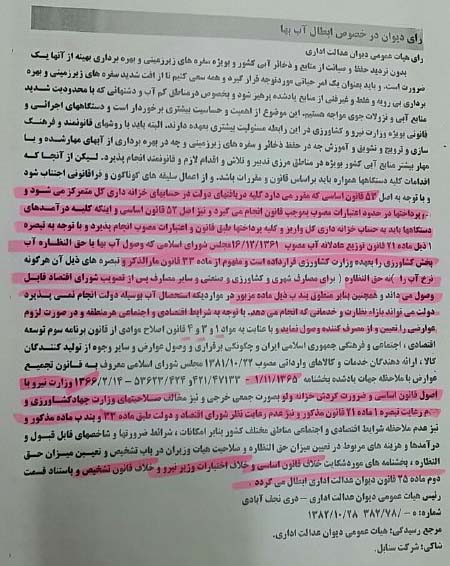 رای دیوان در خصوص ابطال آب بها
رای هیات عمومی دیوان عدالت اداری
بدون تردید حفظ و صیانت از منابع و ذخائر آبی کشور و بویژه سفره های زیرزمینی و بهره برداری بهینه از آنها یک
ضرورت است . و باید بعنوان یک امر حیاتی موردتوجه قرار گیرد و همه سعی کنیم تا از افت شدید سفره های زیرزمینی و بهره
برداری بی رویه و غلط و غیرفنی از منابع یادشده پرهیز شود و بخصوص درمناطق کم آب و دشتهائی که با محدودیت شدید
منابع آبی و نزولات جوی مواجه هستیم. این موضوع از اهمیت و حساسیت بیشتری برخوردار است و دستگاههای اجرائی و
قانونی بویژه وزارت نیرو و کشاورزی در این رابطه مسئولیت بیشتری بعهده دارند. البته باید با روشهای قانونمند و فرهنگ
سازی و ترویج و تشویق و آموزش چه در حفظ ذخائر و سفره های زیرزمینی و چه در بهره برداری از آبهای مهارشده و یا
مهار بیشتر منابع آبی کشور بویژه در مناطق مرزی تدبیر و تلاش و اقدام لازم و قانونمند انجام پذیرد. لیکن از آنجا که
اقدامات کلیه دستگاهها همواره باید براساس قانون و مقررات باشد. و از اعمال سلیقه های گوناگون و فراقانونی اجتناب شود
و با توجه به اصل ۵۳ قانون اساسی که مقرر می دارد کلیه دریافتهای دولت در حسابهای خزانه داری کل متمرکز می شود و
پرداختها در حدود اعتبارات مصوب بموجب قانون انجام می گیرد و نیز اصل ۵۲ قانون اساسی و اینکه کلیه درآمدهای
دستگاهها باید به حساب خزانه داری کل واریز و کلیه پرداختها طبق قانون و اعتبارات مصوب انجام پذیرد و با توجه به تبصره
۱ ذیل ماده ۲۱ قانون توزیع عادلانه آب مصوب ۱۶/۱۲/۱۳۶۱ مجلس شورای اسلامی که وصول آب بها یا حق النظاره آب
بخش کشاورزی را بعهده وزارت کشاورزی قرارداده است و مفهوم از ماده ۳۳ قانون مارالذکر و تبصره های ذیل آن هرگونه
نرخ آب را (به حق النظاره ) برای مصارف شهری و کشاورزی و صنعتی و سایر مصارف پس از تصویب شورای اقتصاد قابل
وصول می داند و همچنین بنابر منطوق بند ب ماده مزبور در مواردیکه استحصال آب بوسیله دولت انجام نمی پذیرد
دولت می تواند بازاء نظارت و خدماتی که انجام می دهد. با توجه به شرایط اقتصادی و اجتماعی هرمنطقه و در صورت لزوم
عوارضی را تعیین و از مصرف کننده وصول نماید و با عنایت به مواد ۱ و ۳ و ۴ قانون اصلاح موادی از قانون برنامه سوم توسعه
اقتصادی ، اجتماعی و فرهنگی جمهوری اسلامی ایران و چگونگی برقراری و وصول عوارض و سایر وجوه از تولید کنندگان
کالا ، ارائه دهندگان خدمات و کالاهای وارداتی مصوب ۱۳۸۱/۱۰/۲۲ مجلس شورای اسلامی معروف به قانون تجمیع
عوارض با ملاحظه جهات یادشده بخشنامه ۱/۱۱/۱۳۶۵ - ۴۲۱/۴۷۱۳۳ و ۵۳۶۲۳/۴۲۴ - ۱۳۶۶/۲/۱۴ وزارت نیرو با
اصول قانون اساسی و ضرورت کردنی خزانه ولو بصورت جمعی خرجی و نیز مخالف صلاحیتهای وزارت جهادکشاورزی و
عدم رعایت تبصره ۱ ماده ۲۱ قانون مذکور و نیز عدم رعایت نظر شورای اقتصاد و دولت طبق ماده ۳۳ و بند ب ماده مذکور و
نیز عدم ملاحظه شرایط اقتصادی و اجتماعی مناطق مختلف کشور بنابر امکانات ، شرائط ضرورتها و شاخصهای قابل قبول و
درآمدها و هزینه های مربوط در تعیین میزان حق النظاره و صلاحیت هیات وزیران در باب تشخیص و تعیین میزان حق
النظاره ، بخشنامه های موردشکایت خلاف قانون اساسی و خلاف اختیارات وزیر نیرو و خلاف قانون تشخیص و باستناد قسمت
دوم ماده ۲۵ قانون دیوان عدالت اداری ابطال می گردد .
رئیس هیات عمومی دیوان عدالت اداری - دری نجف آبادی
شماره : ه - /۳۸۲/۷۸ ۱۳۸۲/۱۰/۲۸
مرجع رسیدگی: هیات عمومی دیوان عدالت اداری.
شاکی: شرکت سنابل.